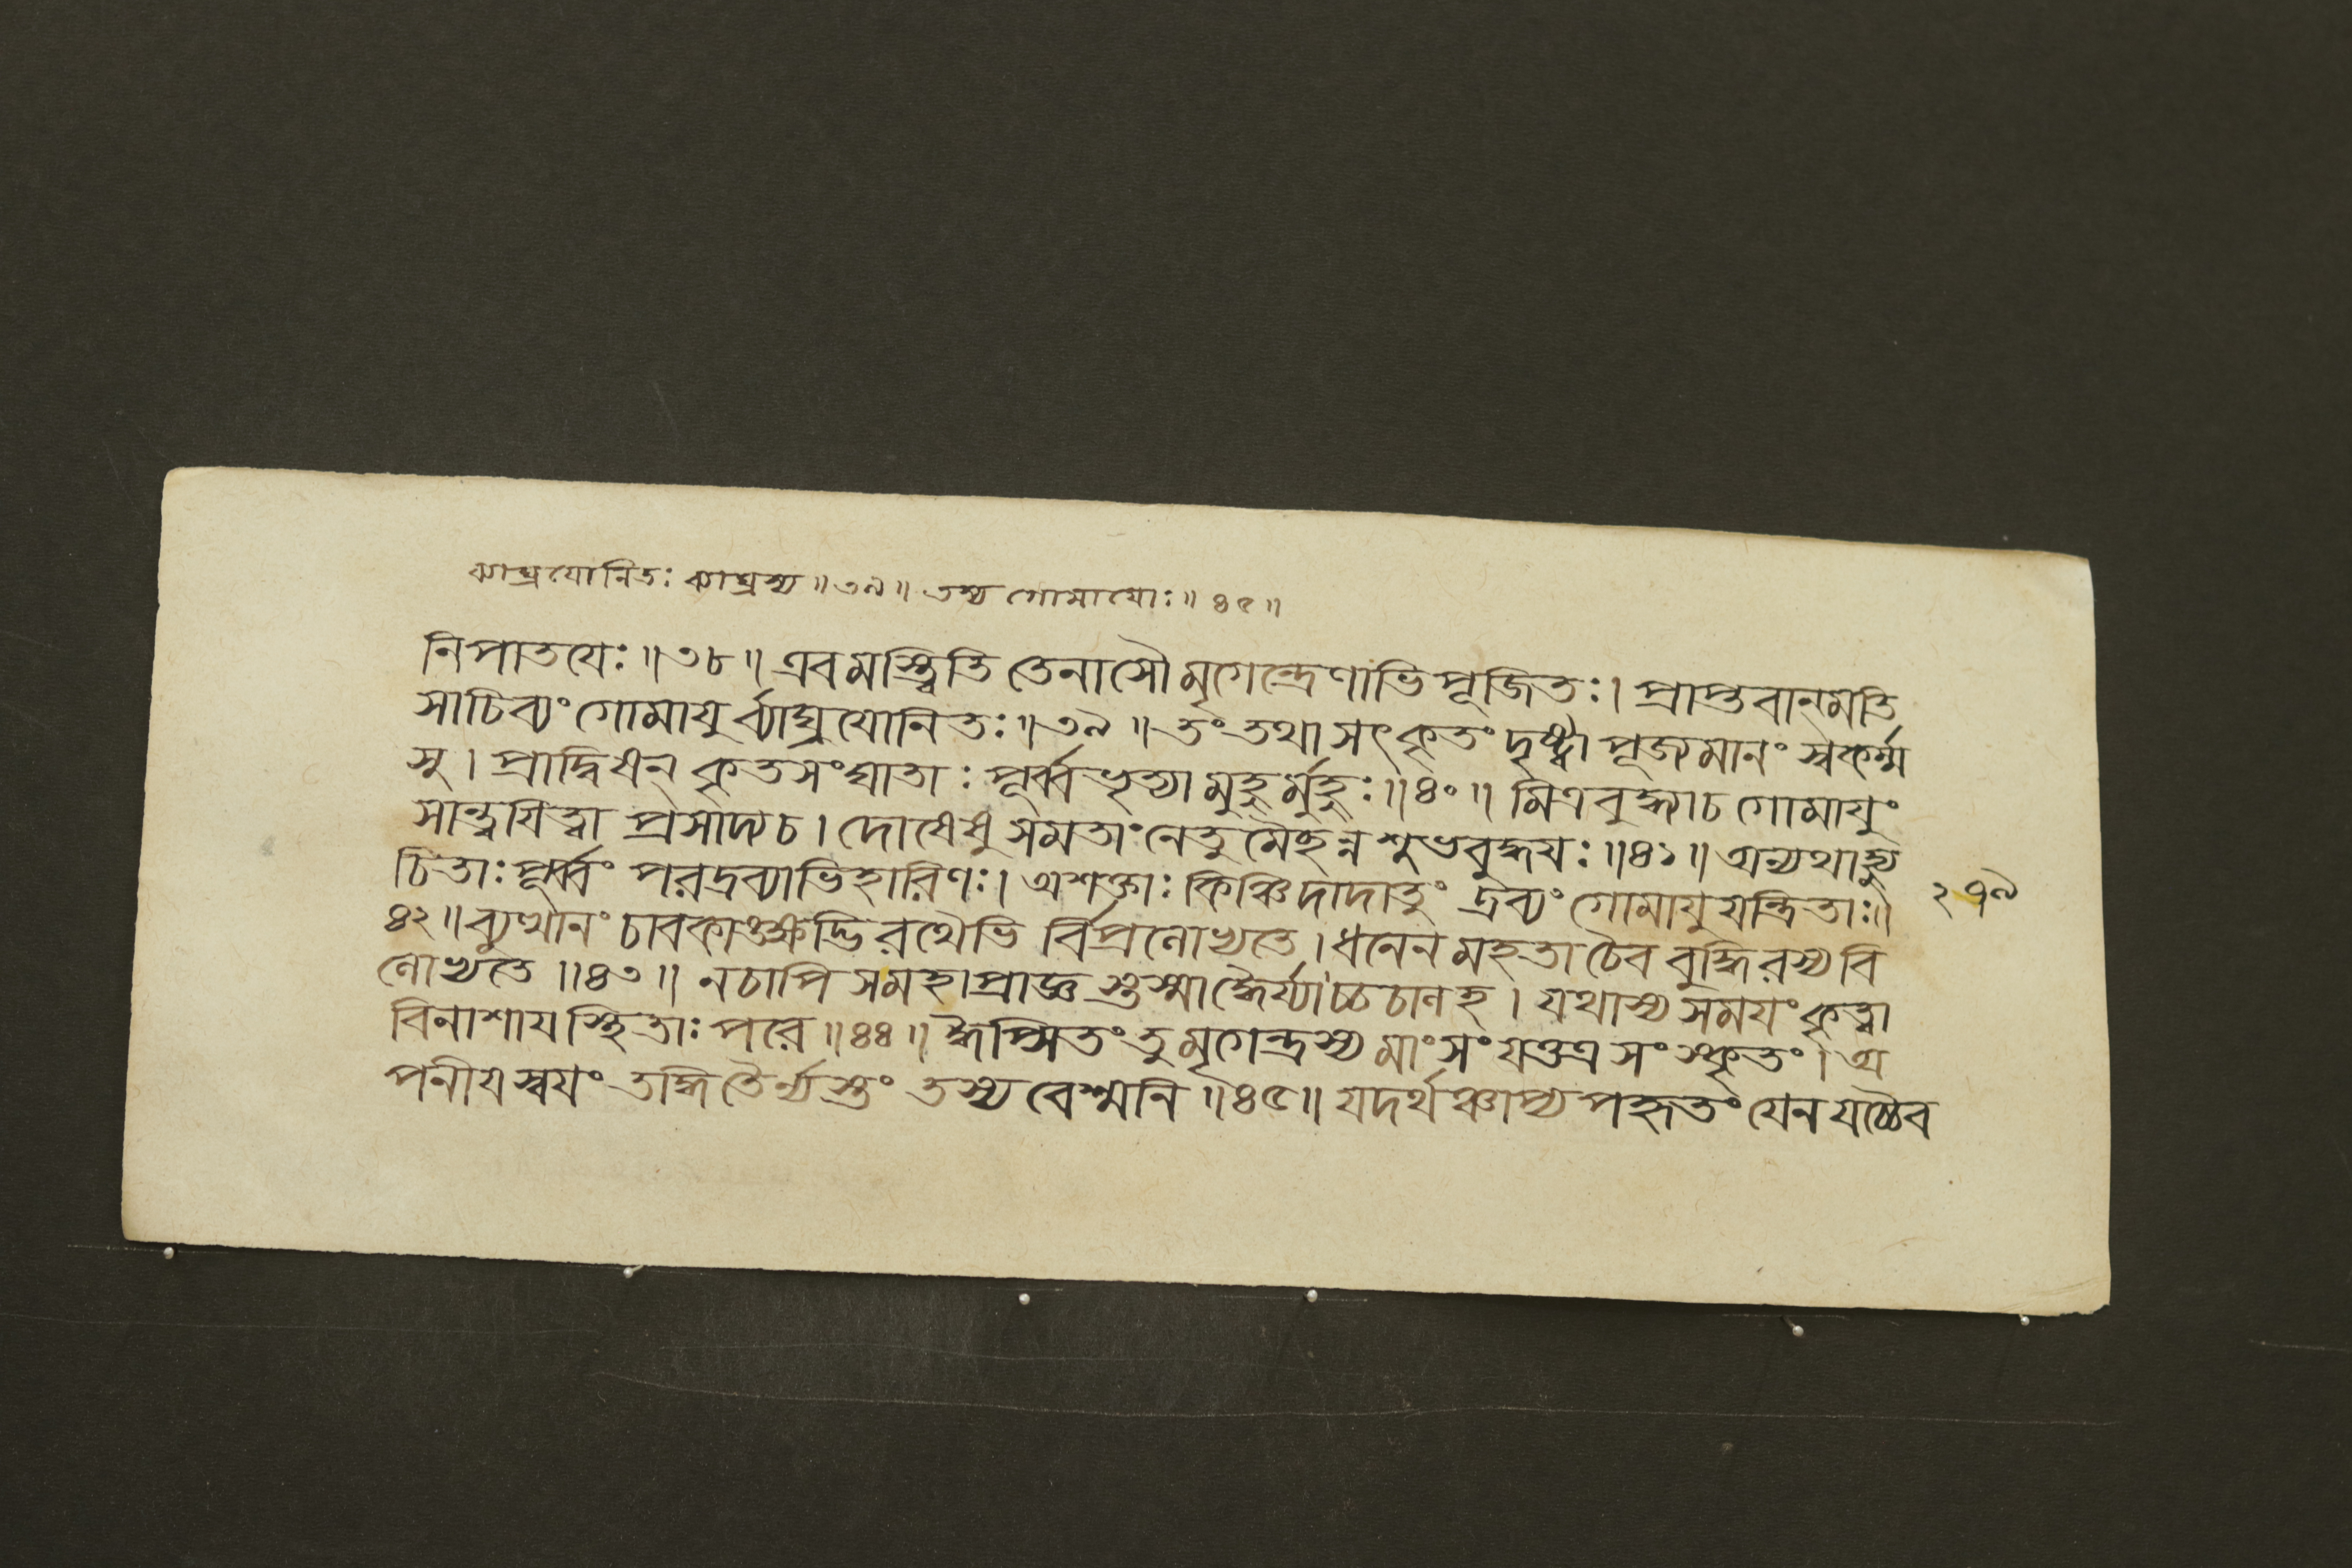 ব্যাঘ্রযোনিতঃ ব্যাঘ্রস্য ॥৩৯॥ তস্য গোমাযোঃ ॥ ৪৫॥
নিপাতযেঃ ॥৩৮॥ এবমস্ত্বিতি তেনাসৌ মৃগেন্দ্রেণাভিপূজিতঃ। প্রাপ্তবান্মতি
সাচিব্যং গোমাযুর্ব্যাঘ্রযোনিতঃ ॥৩৯॥ তং তথা সৎকৃতং দৃষ্ট্বা পূজ্যমানং স্বকর্ম্ম
সু। প্রাদ্বিষন্ কৃতসংঘাতাঃ পূর্ব্বভৃত্যা মুহুর্মুহুঃ ॥৪০॥ মিত্রবুদ্ধ্যাচ গোমাযুং
সান্ত্বযিত্বা প্রসাদ্যচ। দোষেষু সমতাং নেতুমৈছন্নশুভবুদ্ধযঃ ॥৪১॥ অন্যথাহ্যু
চিতাঃ পূর্ব্বং পরদ্রব্যাভিহারিণঃ। অশক্তাঃ কিঞ্চিদাদাতুং দ্রব্যং গোমাযুযন্ত্রিতাঃ॥ ২৭৯
৪২॥ ব্যুত্থানং চাবকাঙ্ক্ষদ্ভিরথৈভির্বিপ্রলোভ্যতে। ধনেন মহতা চৈব বুদ্ধিরস্য বি
লোভ্যতে ॥৪৩॥ ন চাপি স মহাপ্রাজ্ঞস্তস্মাদ্ধৈর্য্যাচ্চচালহ। যথাস্য সমযং কৃত্বা
বিনাশায স্থিতাঃ পরে ॥৪৪॥ ঈপ্সিতং তু মৃগেন্দ্রস্য মাংসং যত্তত্র সংস্কৃতং। অ
পনীয স্বযং তদ্ধি তৈর্ন্যস্তং তস্য বেশ্মনি ॥৪৫॥ যদর্থঞ্চাপ্যপহৃতং যেন যচ্চৈব